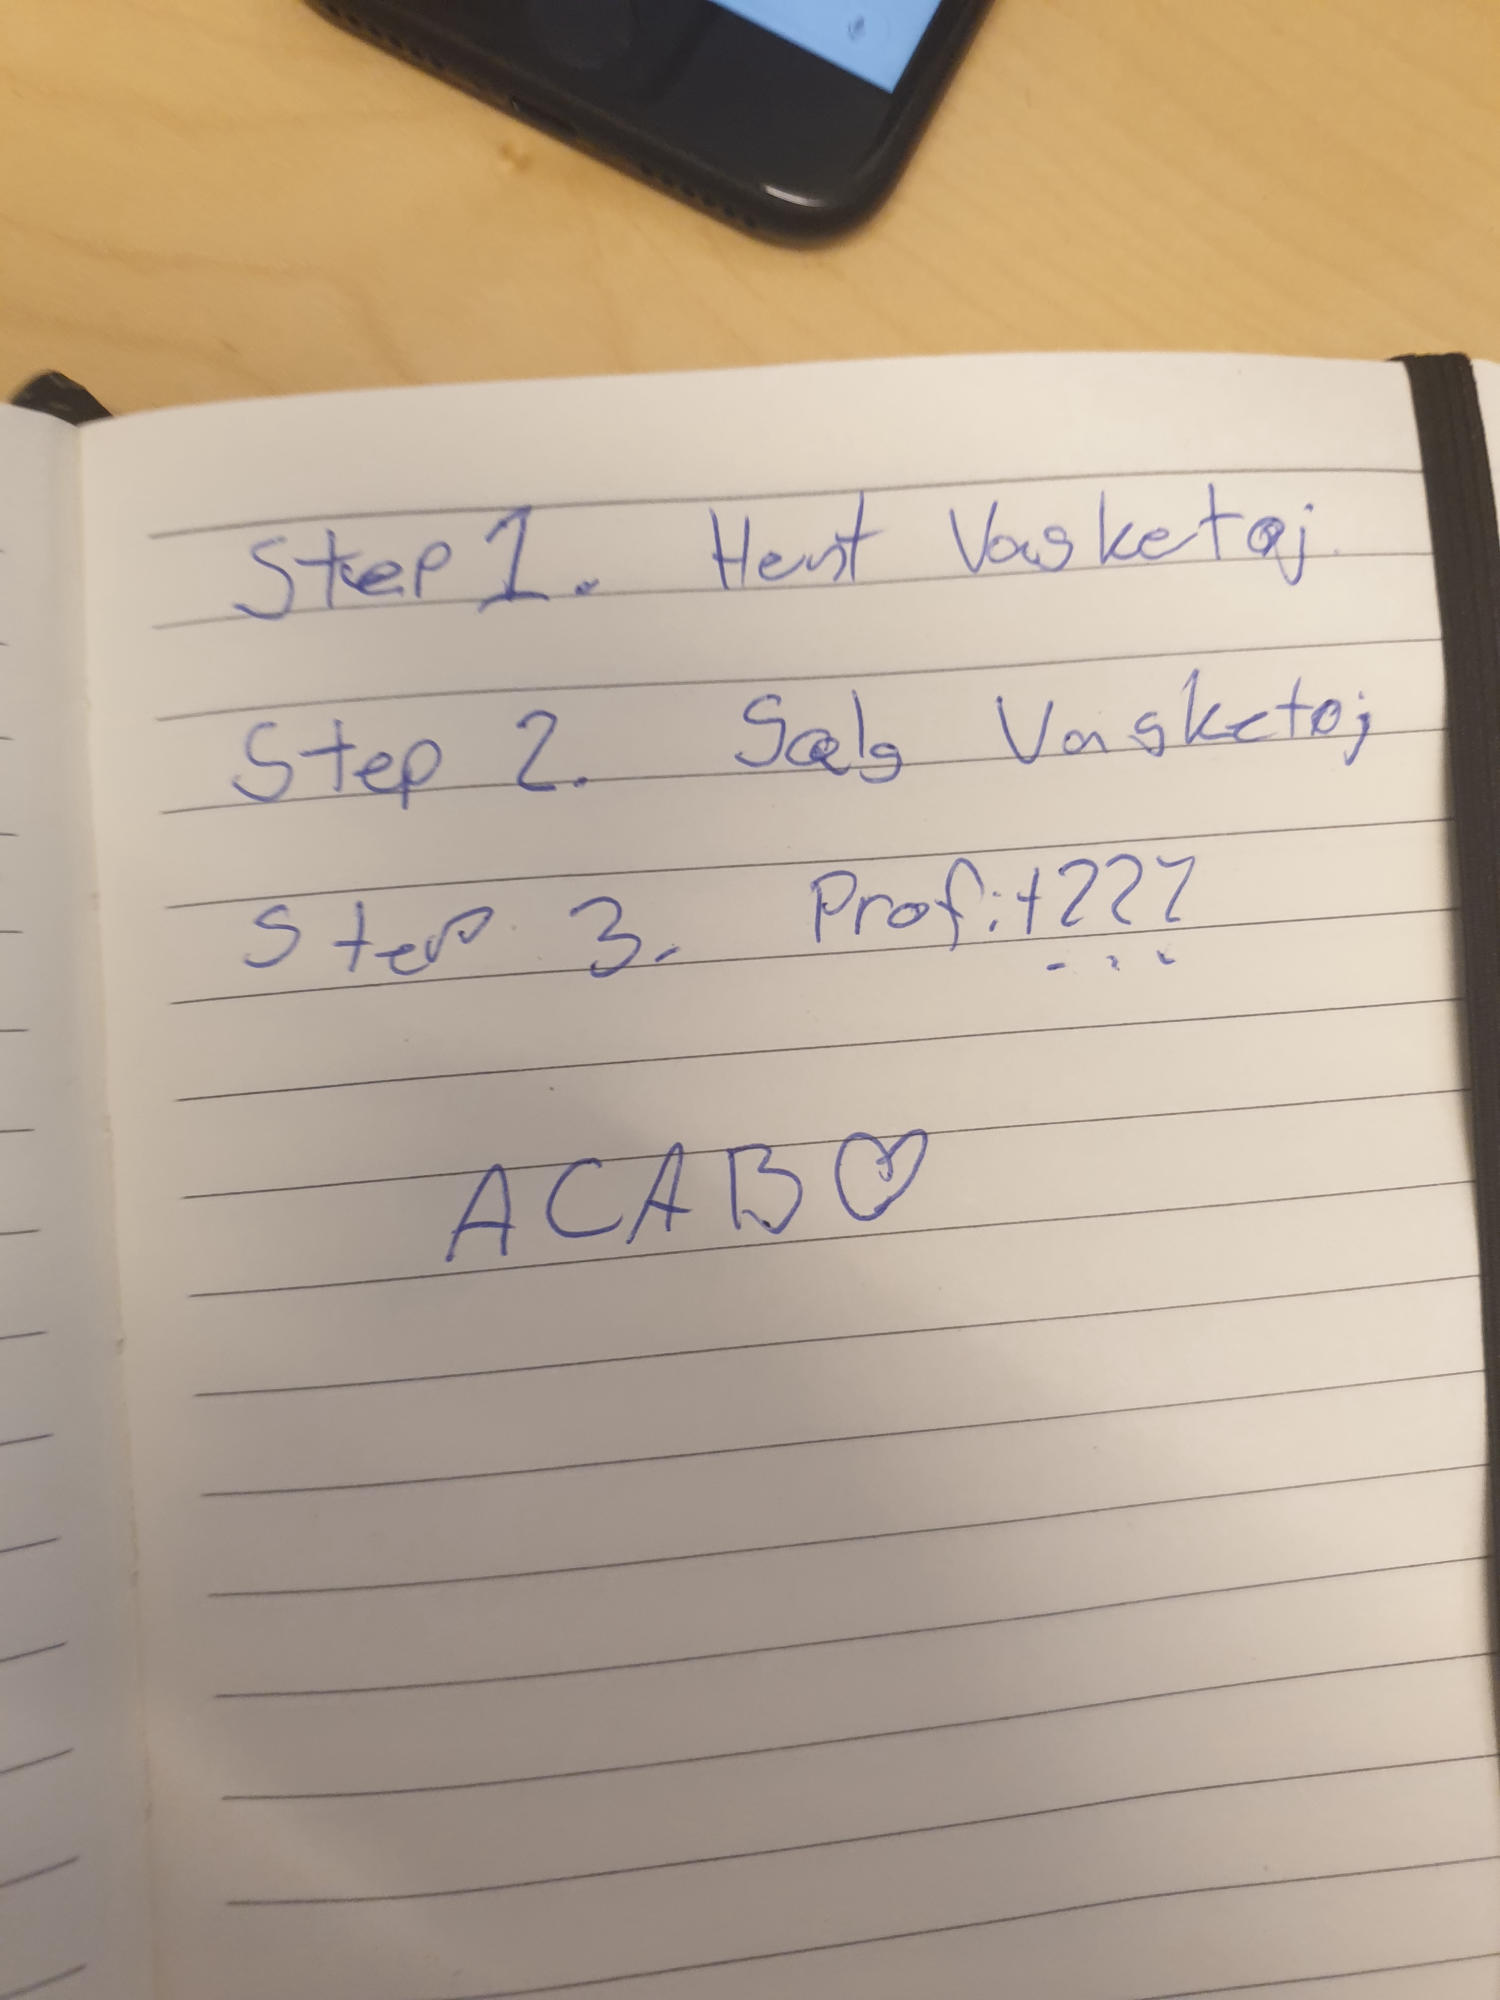 Step 1. Hent Vasketøj
Step 2. Sælg Vasketøj
Step 3. Profit???
ACAB♡